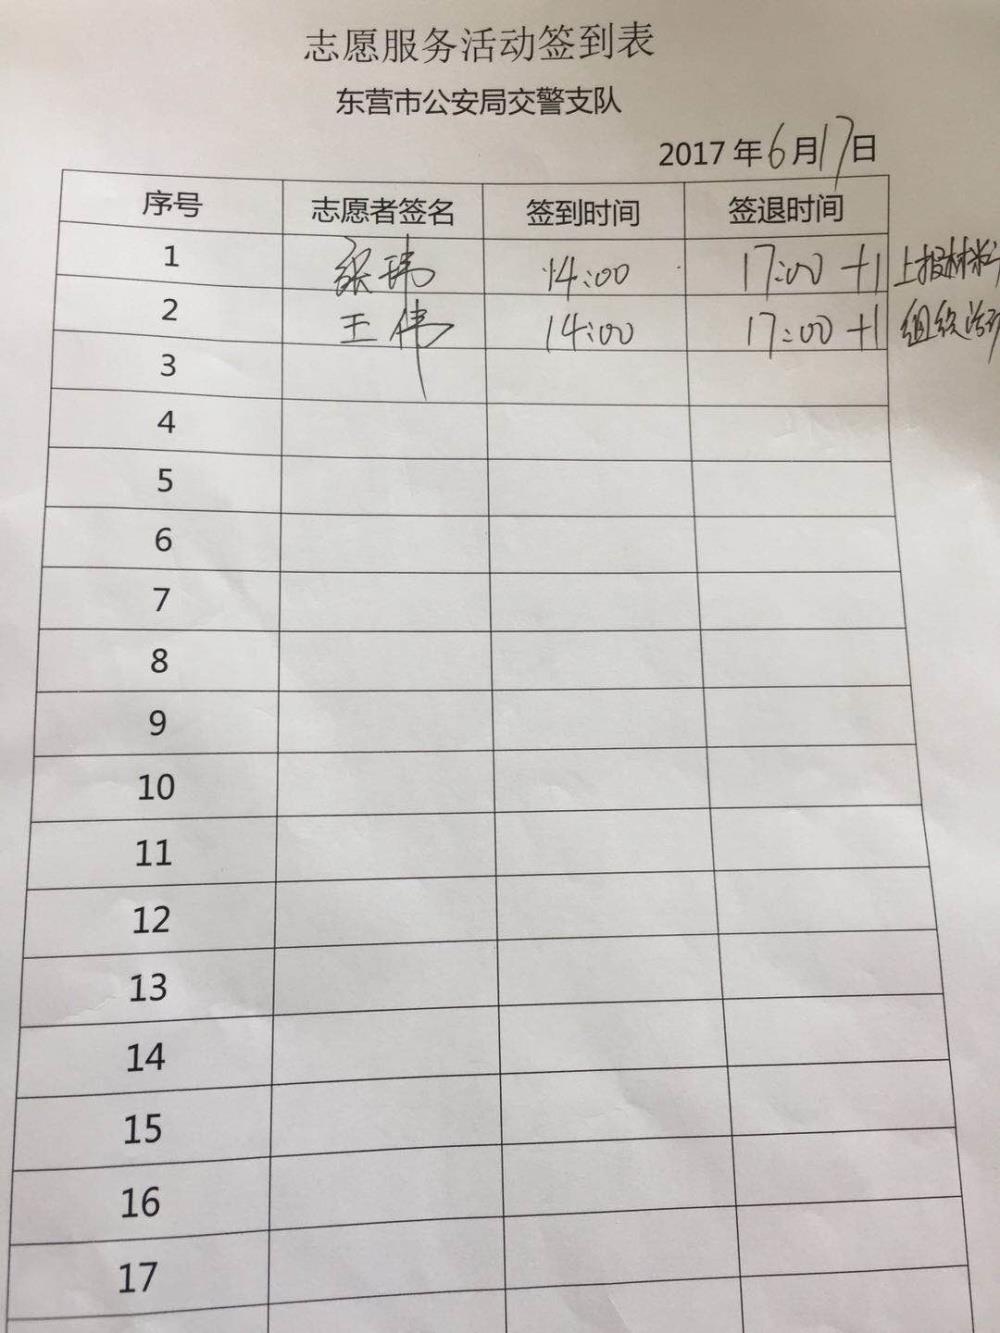 志愿服务活动签到表
东营市公安局交警支队
2017年6月17日
序号 志愿者签名 签到时间 签退时间
1 张玮 14:00 17:00 +1 上报材料
2 王伟 14:00 17:00 +1 组织活动
3
4
5
6
7
8
9
10
11
12
13
14
15
16
17